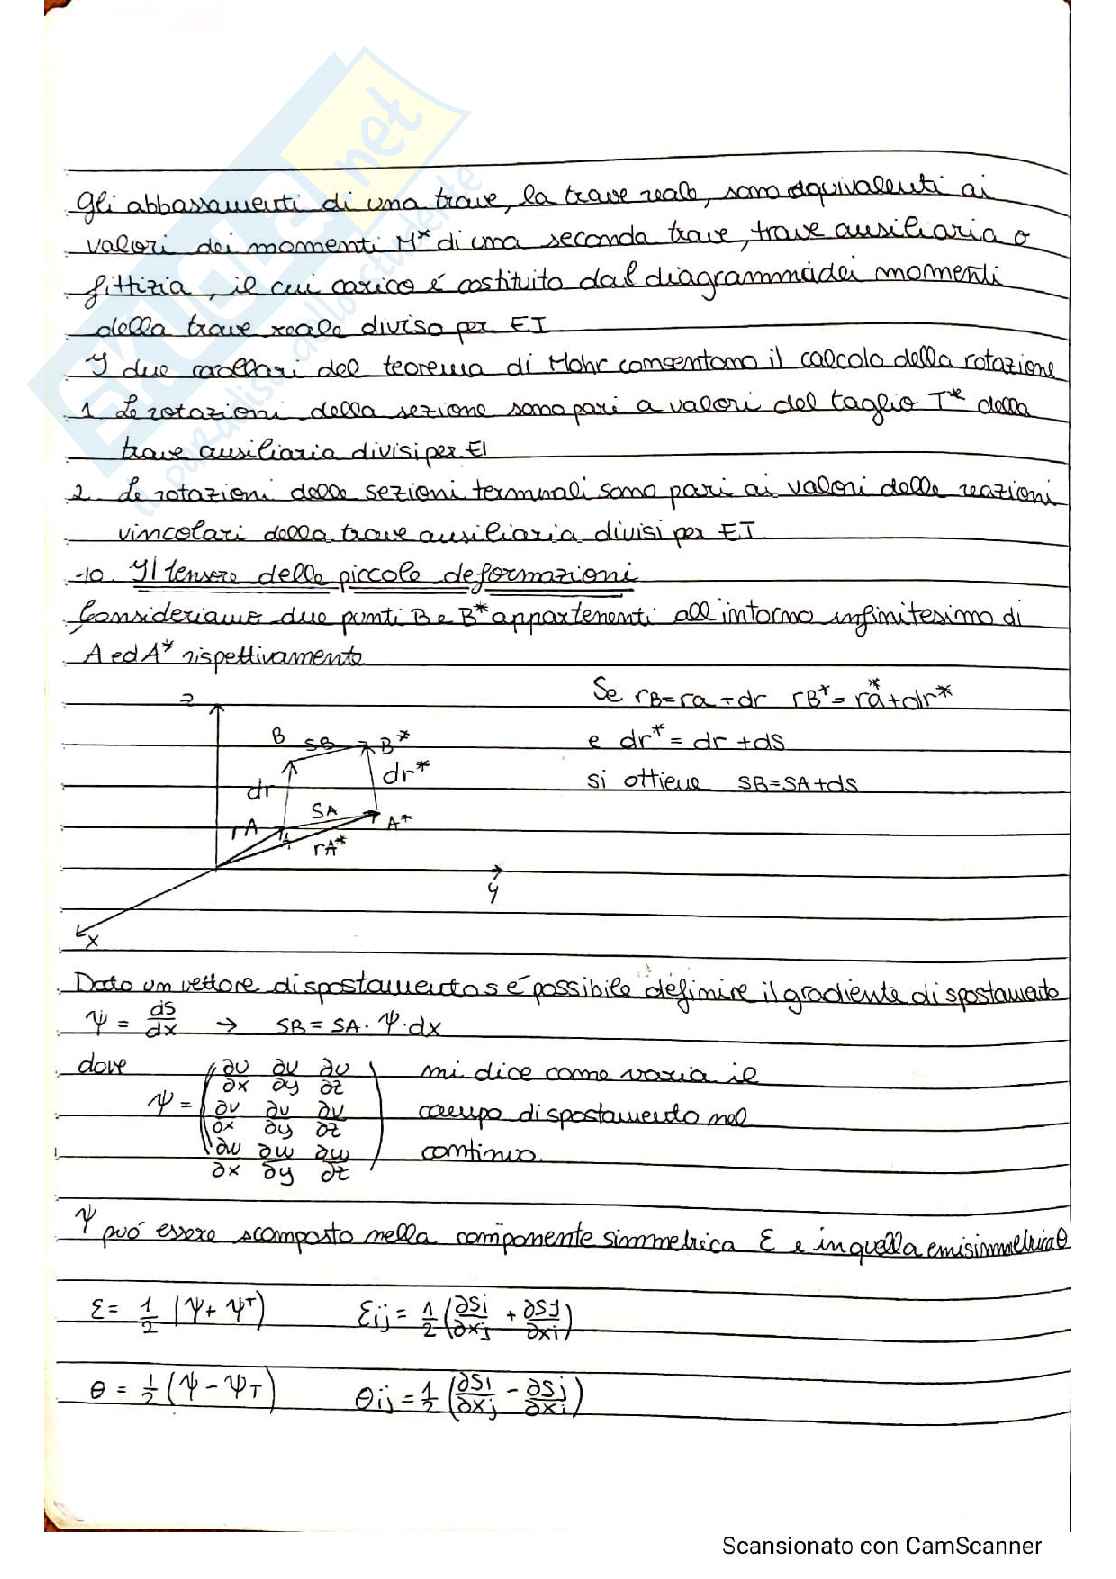 Gli abbassamenti di una trave, la trave reale, sono equivalenti ai
valori dei momenti M* di una seconda trave, trave ausiliaria o
fittizia, il cui carico é costituito dal diagramma dei momenti
della trave reale diviso per EI
I due corollari del teorema di Mohr consentono il calcolo della rotazione
1. Le rotazioni della sezione sono pari a valori del taglio T* della
trave ausiliaria divisi per EI
2. Le rotazioni delle sezioni terminali sono pari ai valori delle reazioni
vincolari della trave ausiliaria divisi per EI
-10. Il tensore delle piccole deformazioni
Consideriamo due punti B e B* appartenenti all'intorno infinitesimo di
A ed A* rispettivamente
Se rB=ra+dr rB*=ra*+dr*
e dr*=dr+ds
si ottiene SB=SA+ds
z
B SB B*
dr dr*
SA A*
rA A
rA*
y
x
Dato un vettore di spostamento s é possibile definire il gradiente di spostamento
Ψ = ds/dx → SB = SA · Ψ · dx
dove
Ψ = (∂u/∂x ∂u/∂y ∂u/∂z
∂v/∂x ∂v/∂y ∂v/∂z
∂w/∂x ∂w/∂y ∂w/∂z)
mi dice come varia il
campo di spostamento nel
continuo.
Ψ puó essere scomposto nella componente simmetrica ε e in quella emisimmetrica θ
ε = 1/2 (Ψ + Ψᵀ) εij = 1/2 (∂Si/∂xj + ∂Sj/∂xi)
θ = 1/2 (Ψ - ΨT) θij = 1/2 (∂Si/∂xj - ∂Sj/∂xi)
SKUOLA.net
il paradiso dello studente
Scansionato con CamScanner